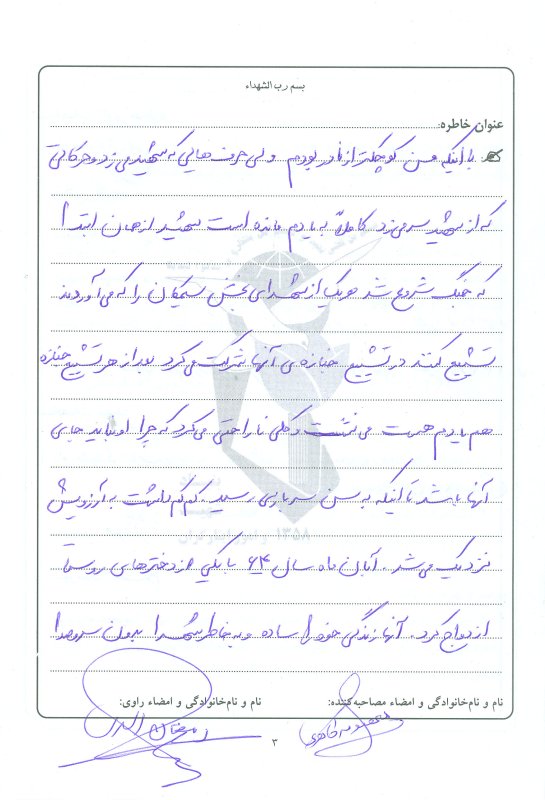 بسم رب الشهداء
عنوان خاطره:
با اینکه من کوچکتر از نادر بودم ولی حرف هایی که شهید می زد و حرکاتی
که از شهید سر می زد کاملاً به یادم مانده است شهید از همان ابتدا
که جنگ شروع شد هر یک از شهدای بخش سیمکان را که می آوردند
تشییع کنند در تشییع جنازه ی آنها شرکت می کرد بعد از هر تشییع جنازه
هم یادم هست می نشست و کلی ناراحتی می کرد که چرا او نباید جای
آنها باشد تا اینکه به سن سربازی رسید کم کم داشت به آرزویش
نزدیک می شد. آبان ماه سال ۶۴ با یکی از دخترهای روستا
ازدواج کرد. آنها زندگی خود را ساده و به خاطر شهدا بدون سر و صدا
نام و نام‌خانوادگی و امضاء مصاحبه‌کننده:
نام و نام‌خانوادگی و امضاء راوی:
۳